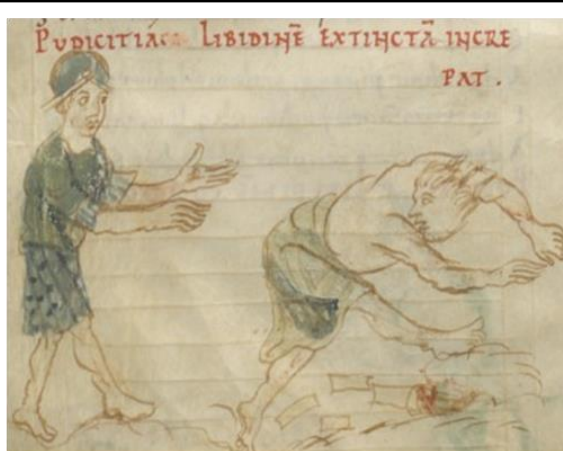 PUDICITIA LIBIDINĒ EXTINCTĀ INCRE
PAT.